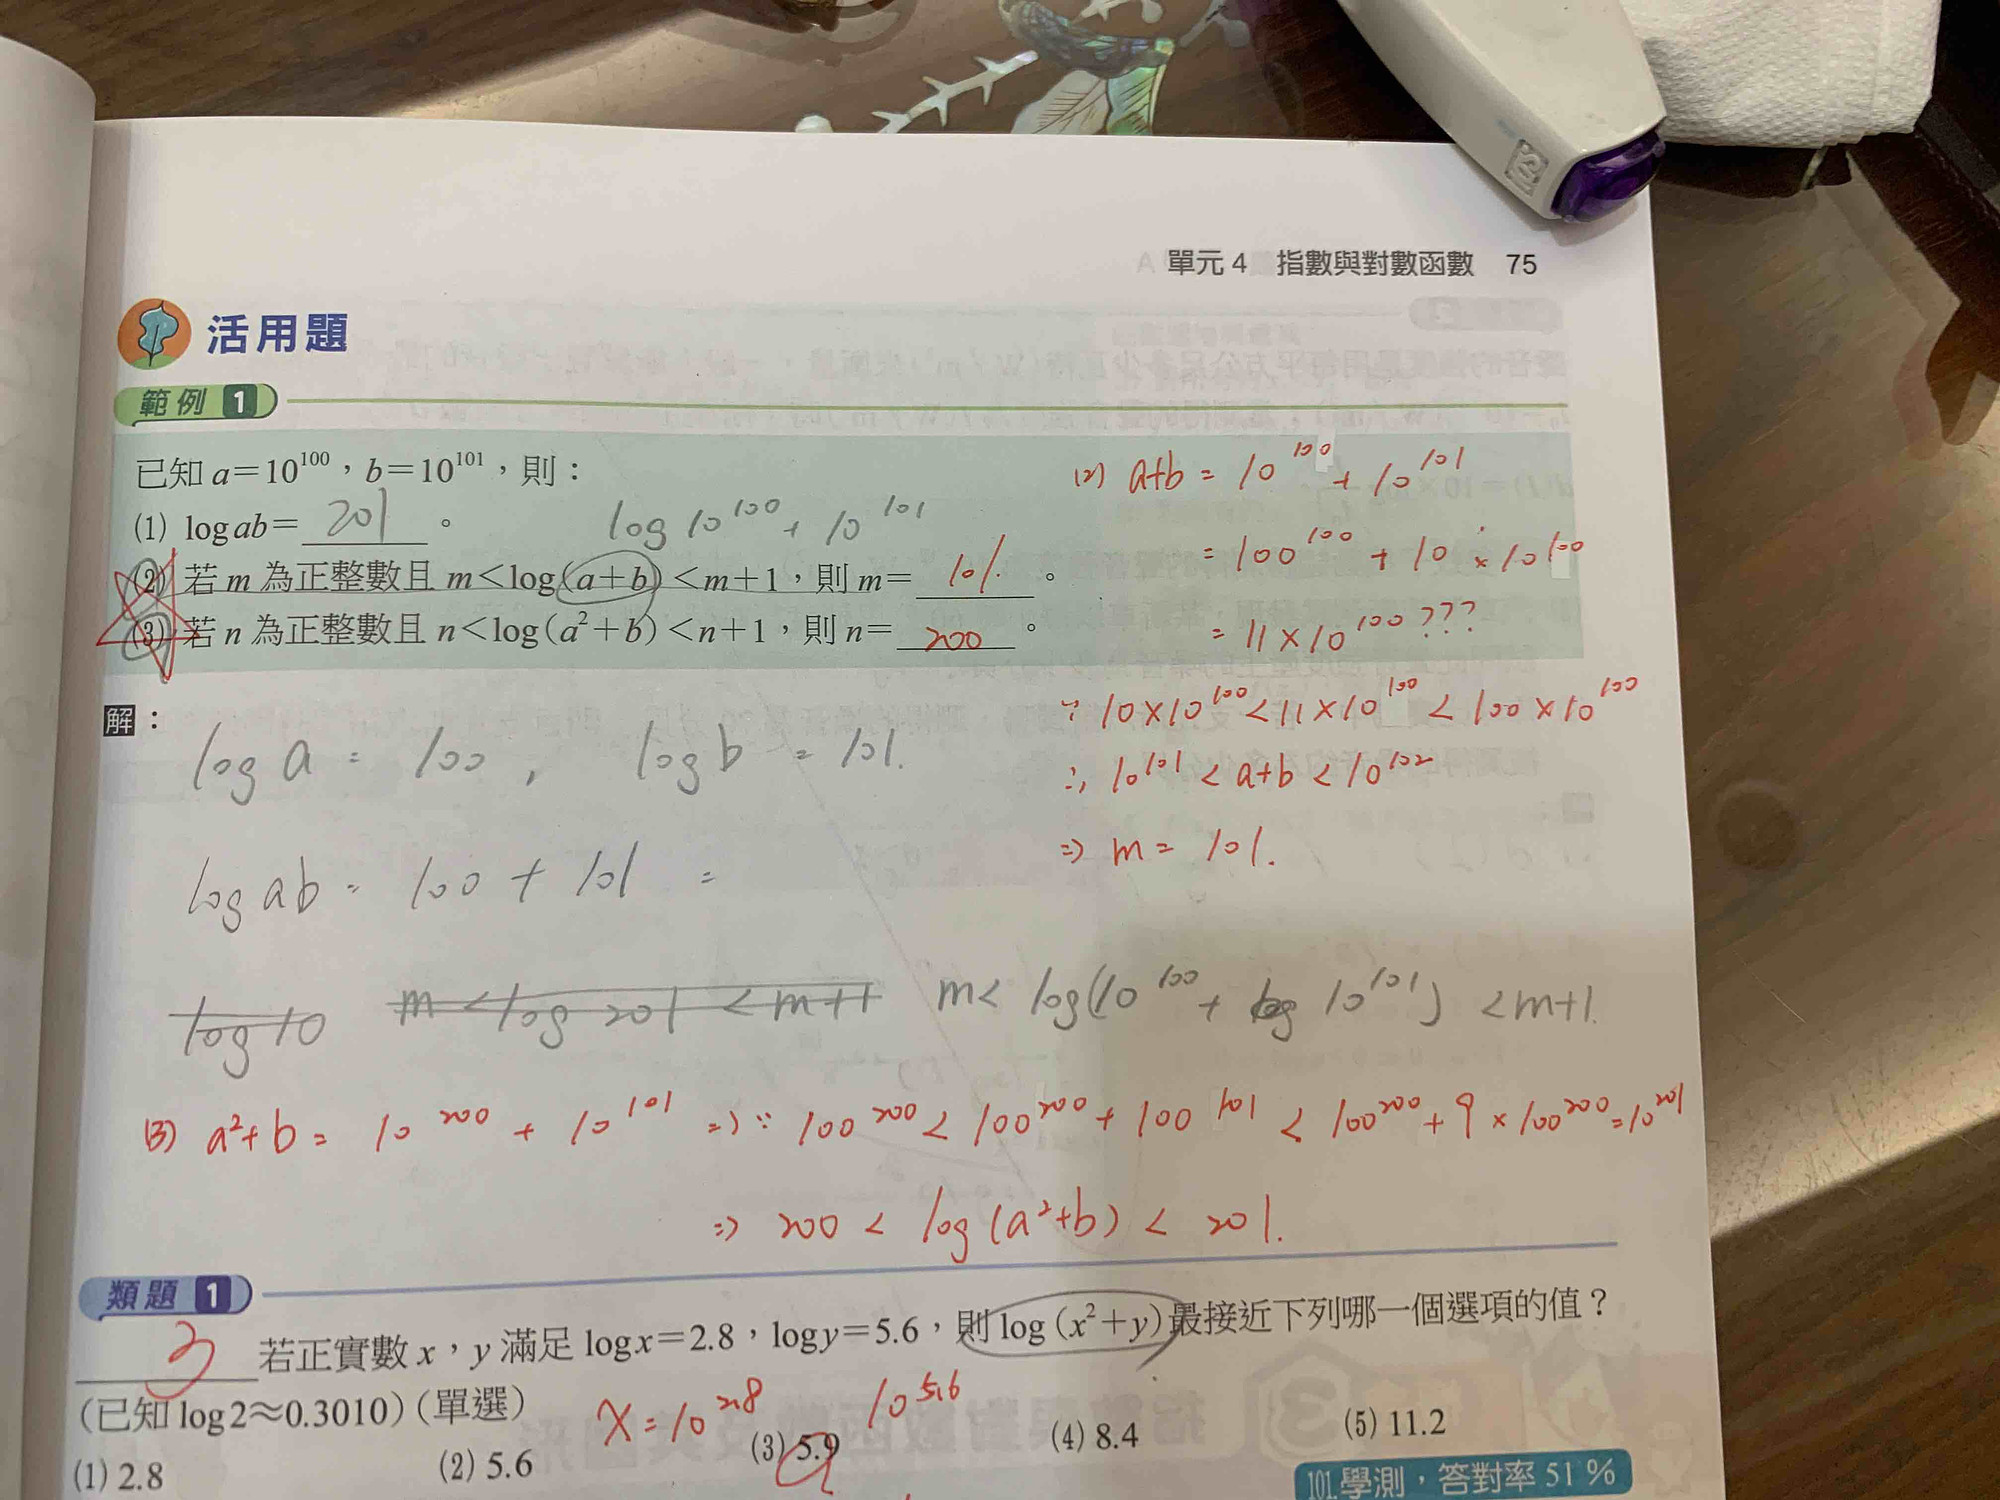 單元 4 指數與對數函數 75
活用題
範例 1
已知 a=10^100，b=10^101，則：
(1) log ab= 201 。
log 10^100 + 10^101
(2) 若 m 為正整數且 m<log(a+b)<m+1，則 m= 101. 。
(3) 若 n 為正整數且 n<log(a²+b)<n+1，則 n= 200 。
(2) a+b = 10^100 + 10^101
= 100^100 + 10 × 10^100
= 11×10^100 ???
∵ 10×10^100 < 11×10^100 < 100×10^100
∴ 10^101 < a+b < 10^102
=> m = 101.
解：
log a = 100 , log b = 101.
log ab = 100 + 101 =
log 10 m < log 201 < m+1 m< log(10^100 + log 10^101) <m+1.
(3) a²+b = 10^200 + 10^101 => ∵ 100^200 < 100^200 + 100^101 < 100^200 + 9 × 100^200 = 10^201
=> 200 < log (a²+b) < 201.
類題 1
3 若正實數 x，y 滿足 log x=2.8，log y=5.6，則 log (x²+y) 最接近下列哪一個選項的值？
(已知 log 2≈0.3010)(單選)
x = 10^2.8 10^5.6
(1) 2.8 (2) 5.6 (3) 5.9 (4) 8.4 (5) 11.2
101.學測，答對率 51 %